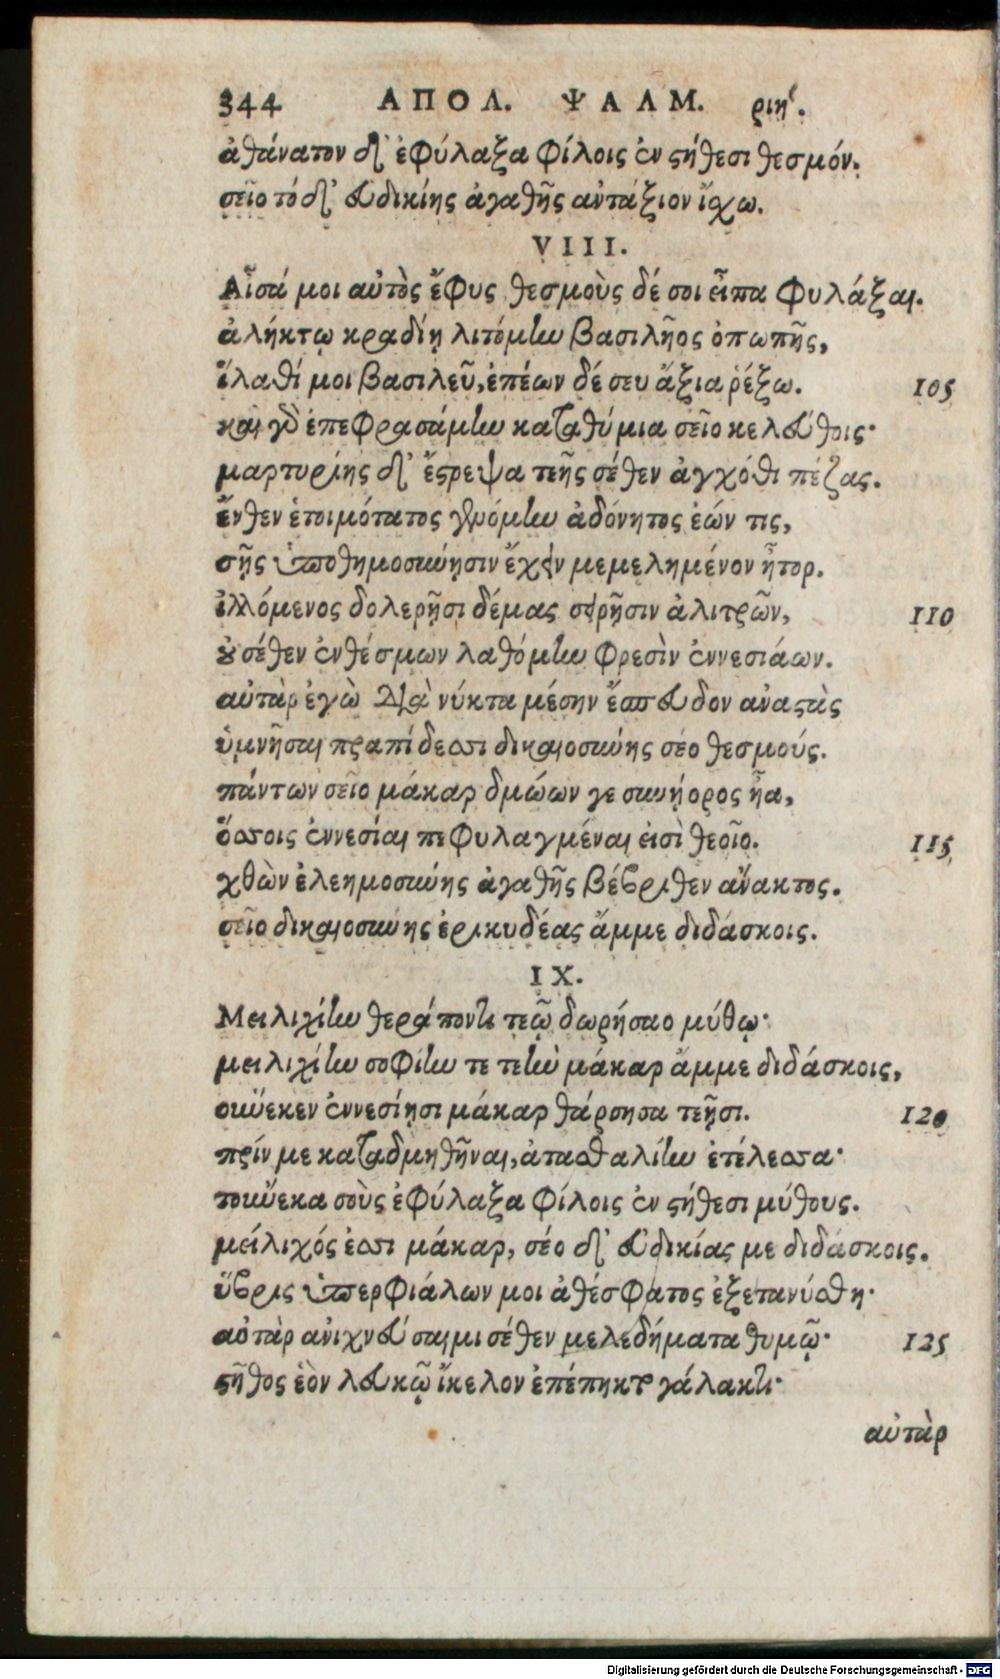 344 ΑΠΟΛ. ΨΑΛΜ. ριή.
ἀθάνατον δ' ἐφύλαξα φίλοις ἐν στήθεσι θεσμόν.
σεῖο τόδ' εὐδικίης ἀγαθῆς ἀντάξιον ἴσχω.
VIII.
Αἶσά μοι αὐτὸς ἔφυς θεσμοὺς δέ σοι εἶπα φυλάξαι.
ἀλήκτῳ κραδίῃ λιτόμην βασιλῆος ὀπωπῆς,
ἵλαθί μοι βασιλεῦ, ἐπέων δέ σευ ἄξια ῥέξω. 105
καὶ γὸ ἐπεφρασάμην καταθύμια σεῖο κελεύθοις·
μαρτυρίης δ' ἔστρεψα τεῆς σέθεν ἀγχόθι πέζας.
ἔνθεν ἑτοιμότατος γενόμην ἀδόνητος ἐών τις,
σῇς ὑποθημοσύνῃσιν ἔχειν μεμελημένον ἦτορ.
ἰλλόμενος δολερῇσι δέμας σειρῇσιν ἀλιτρῶν, 110
οὐ σέθεν ἐνθέσμων λαθόμην φρεσὶν ἐννεσιάων.
αὐτὰρ ἐγὼ διὰ νύκτα μέσην ἔσπευδον ἀναστὰς
ὑμνῆσαι πραπίδεσσι δικαιοσύνης σέο θεσμούς.
πάντων σεῖο μάκαρ δμώων γε συνήορος ἦα,
ὅσσοις ἐννεσίαι πεφυλαγμέναι εἰσὶ θεοῖο. 115
χθὼν ἐλεημοσύνης ἀγαθῆς βέβριθεν ἄνακτος.
σεῖο δικαιοσύνης ἐρικυδέας ἄμμε διδάσκοις.
IX.
Μειλιχίην θεράποντι τεῷ δωρήσαο μύθῳ·
μειλιχίην σοφίην τε τεὴν μάκαρ ἄμμε διδάσκοις,
οὕνεκεν ἐννεσίῃσι μάκαρ θάρσησα τεῇσι. 120
πρίν με καταδμηθῆναι, ἀτασθαλίην ἐτέλεσσα·
τοὔνεκα σοὺς ἐφύλαξα φίλοις ἐν στήθεσι μύθους.
μείλιχός ἐσσι μάκαρ, σέο δ' εὐδικίας με διδάσκοις.
ὕβρις ὑπερφιάλων μοι ἀθέσφατος ἐξετανύσθη·
αὐτὰρ ἀνιχνεύσαιμι σέθεν μελεδήματα θυμῷ· 125
στῆθος ἑὸν λευκῷ ἴκελον ἐπέπηκτο γάλακτι·
αὐτὰρ
Digitalisierung gefördert durch die Deutsche Forschungsgemeinschaft - DFG